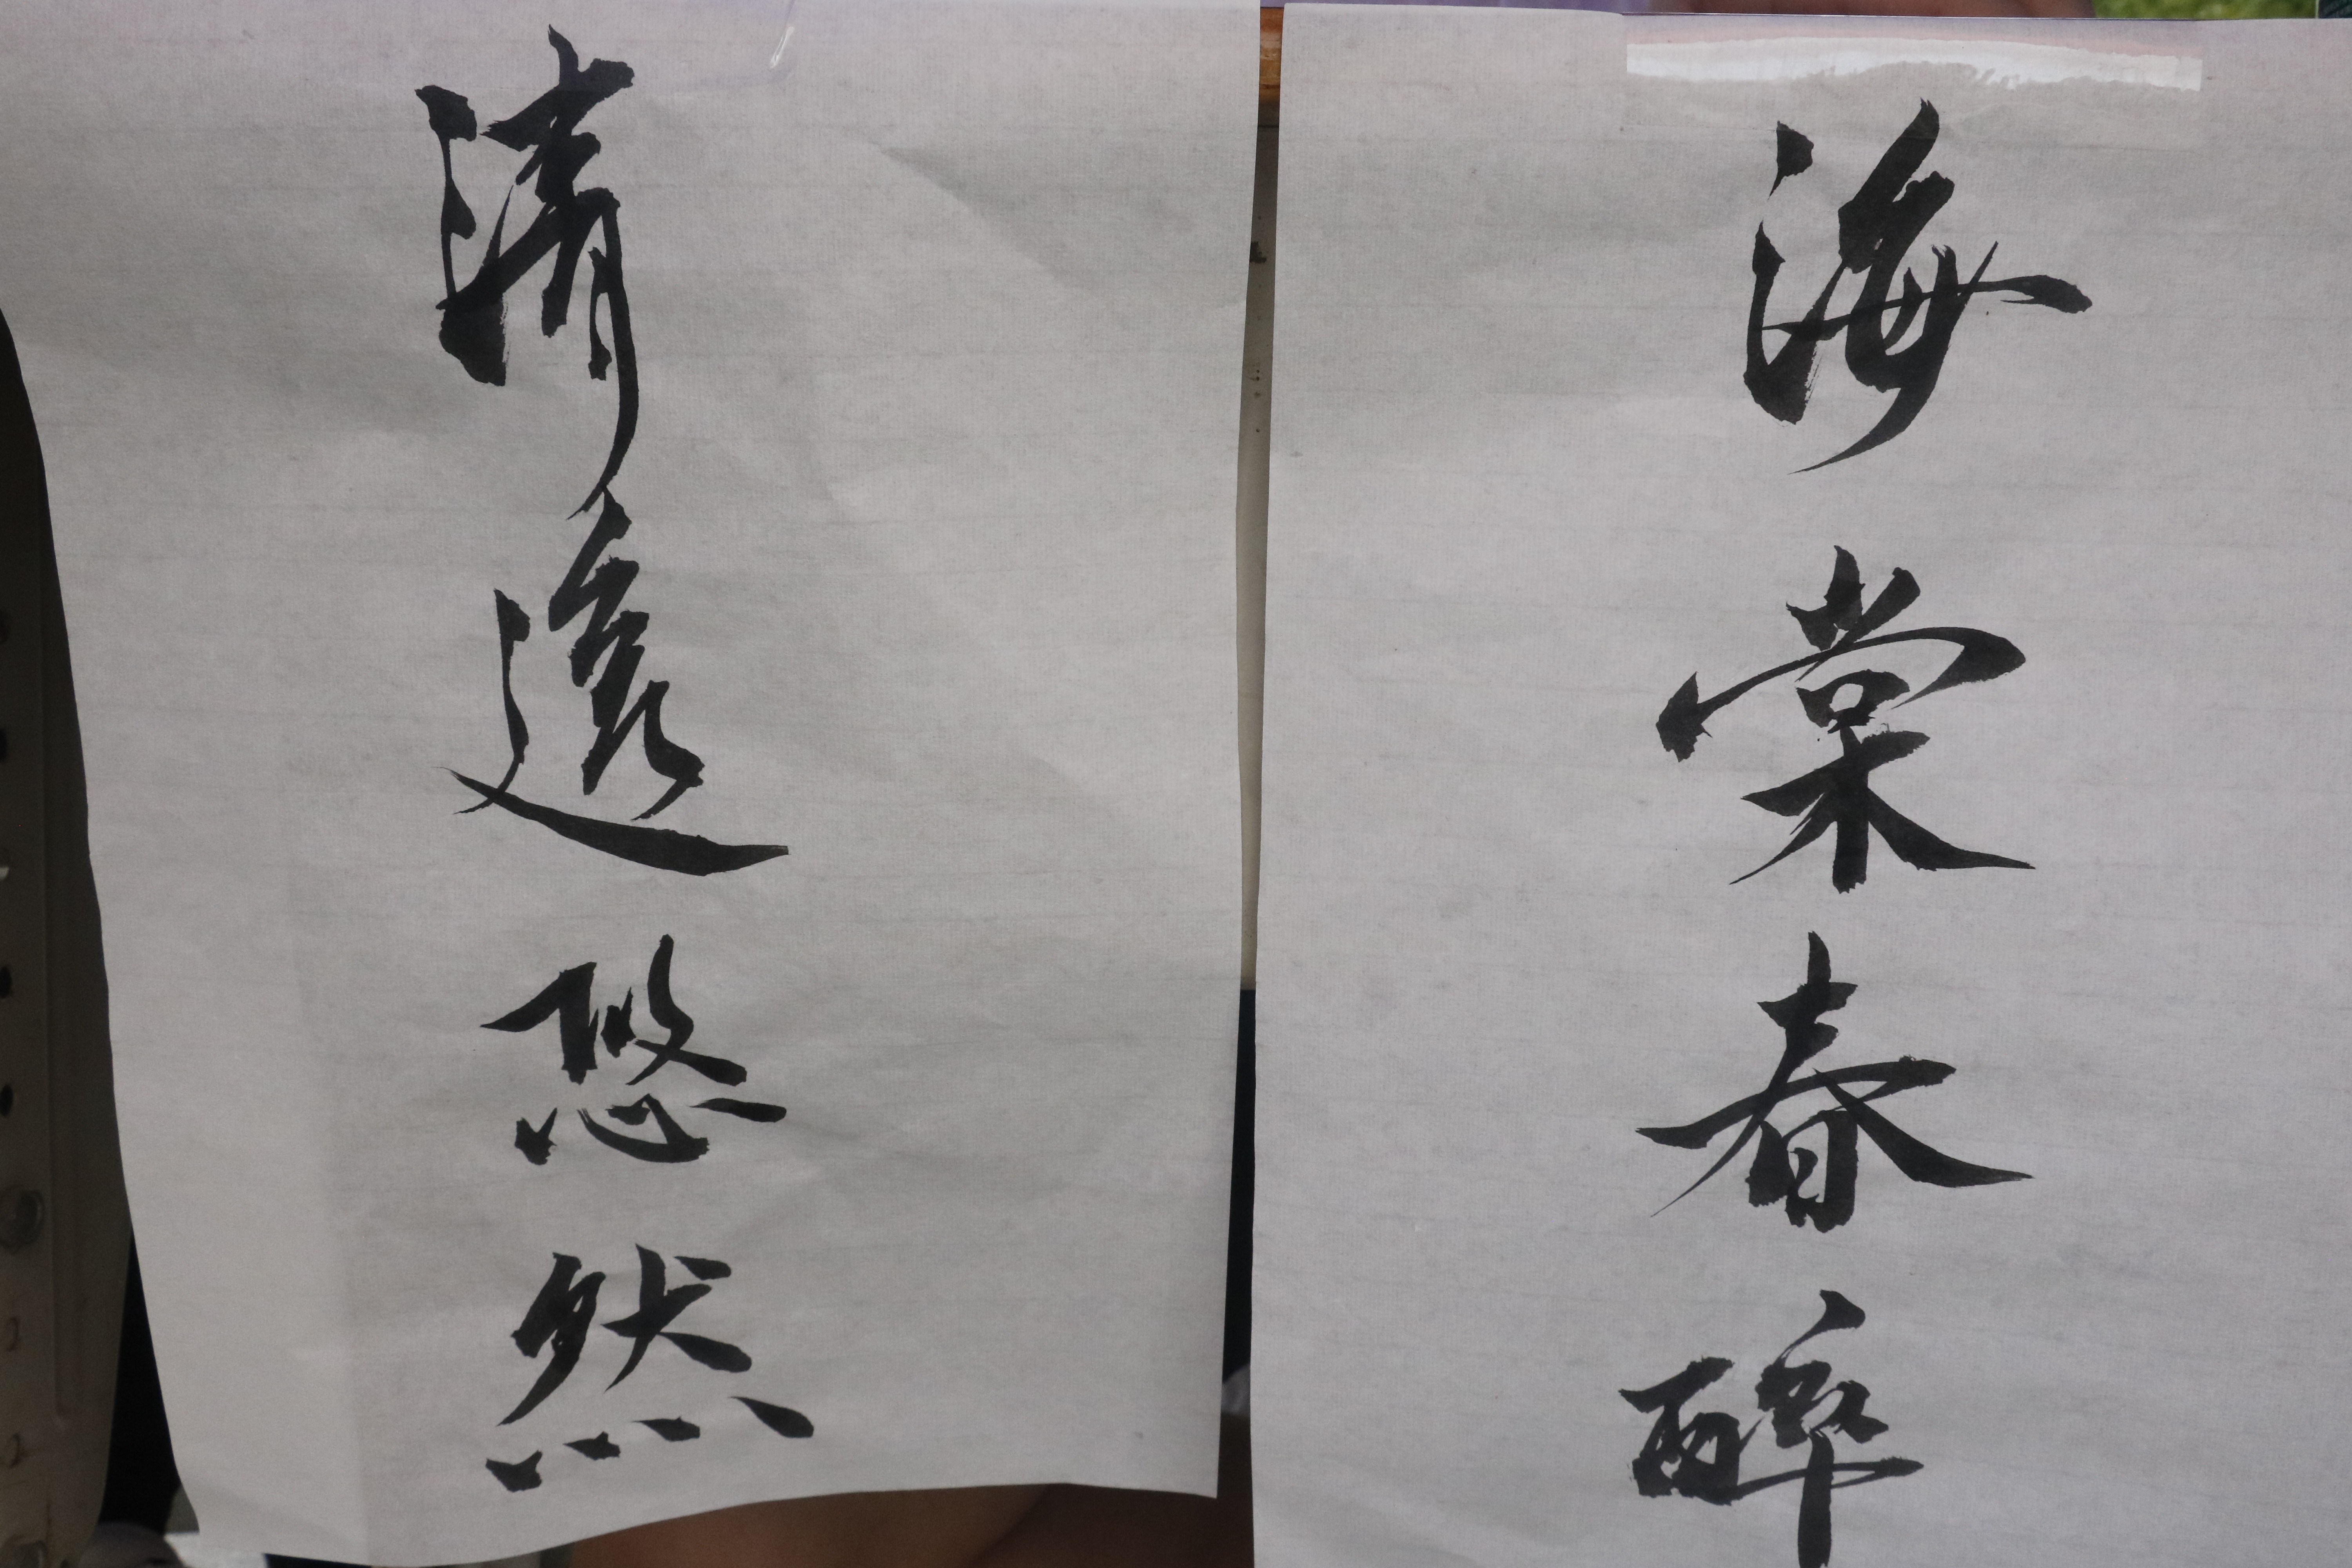 海棠春醉
清遠悠然